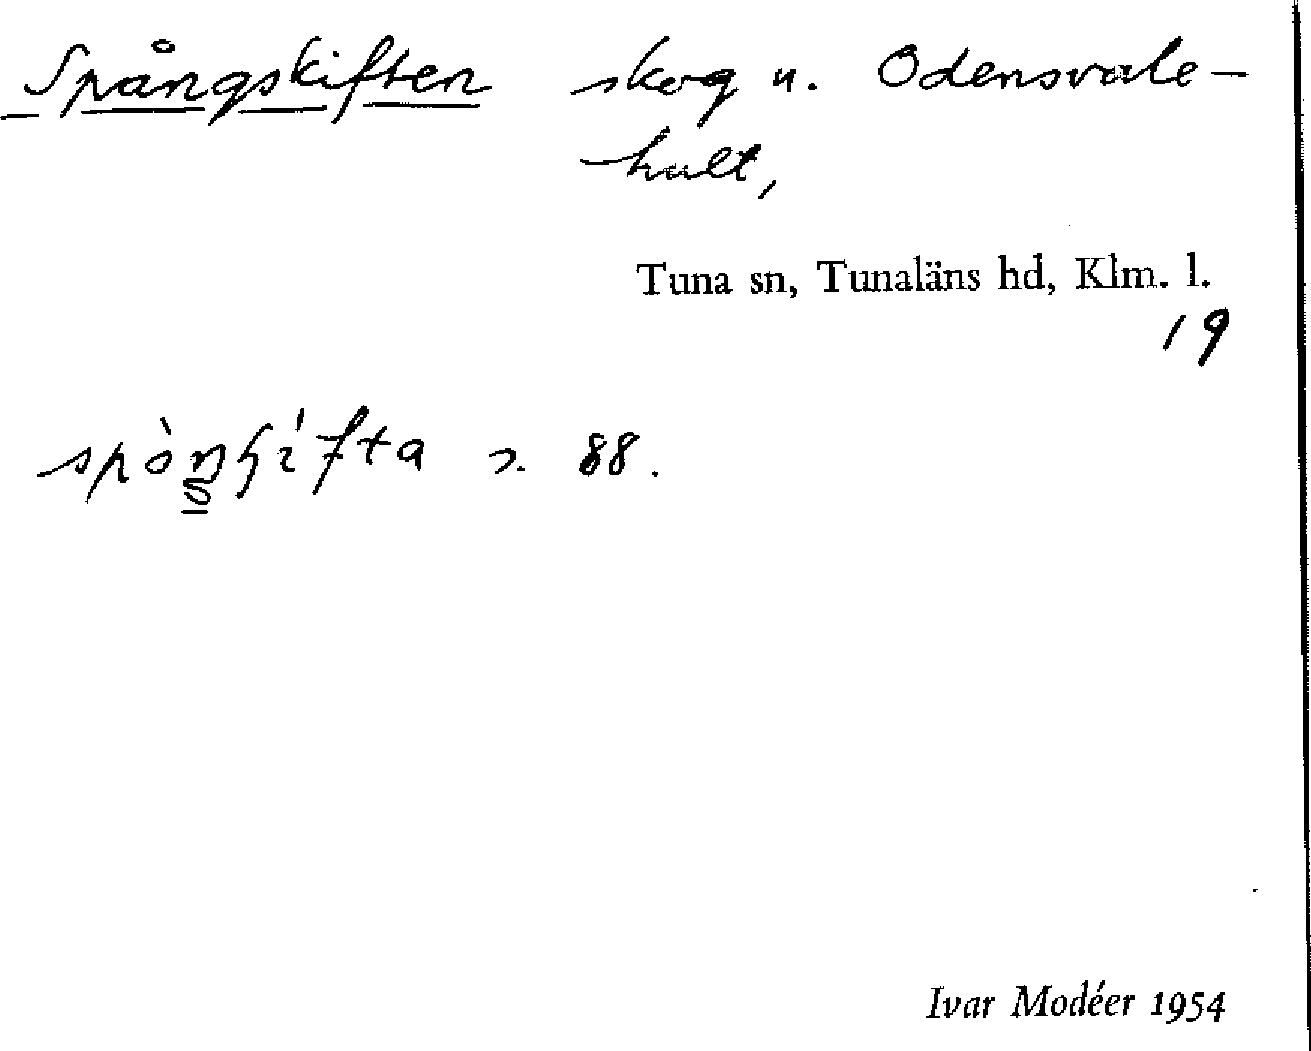 Spångskiften skog u. Odensvale-
hult,
Tuna sn, Tunaläns hd, Klm. l.
19
s. 88.
Ivar Modéer 1954